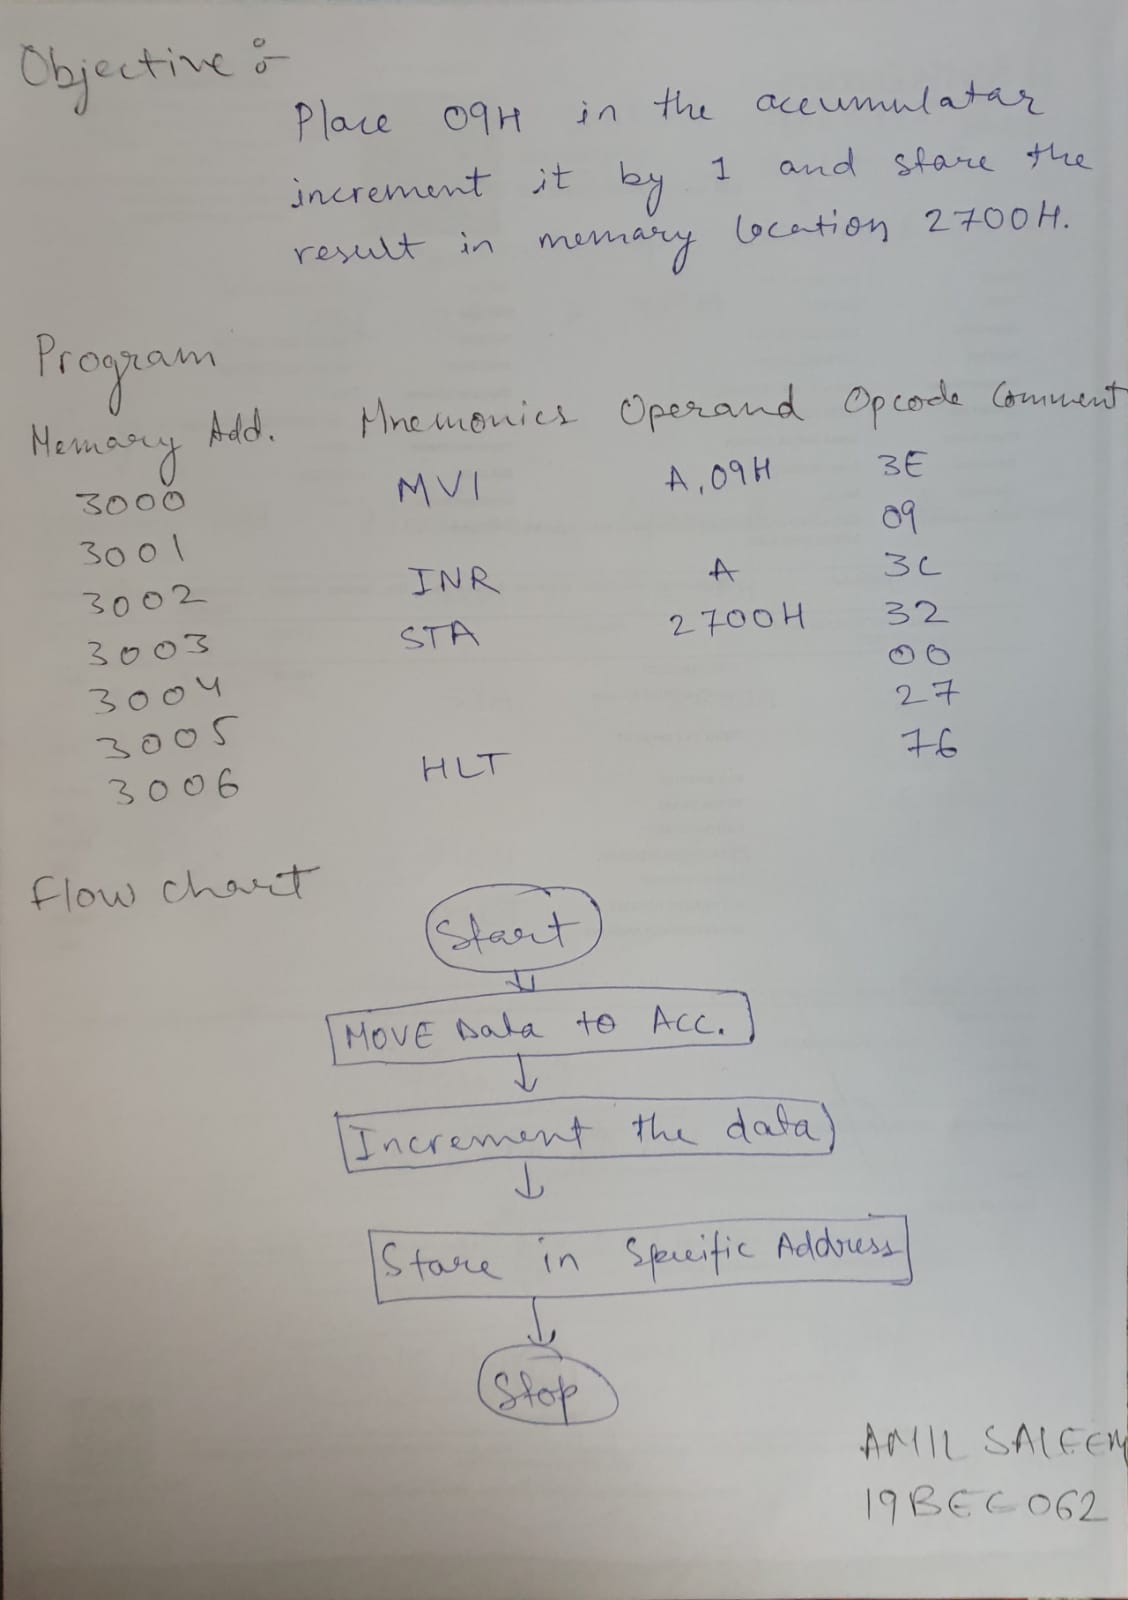 Objective :-
Place 09H in the accumulator
increment it by 1 and store the
result in memory location 2700H.
Program
Memory Add. Mnemonics Operand Opcode Comment
3000 MVI A,09H 3E
3001 09
3002 INR A 3C
3003 STA 2700H 32
3004 00
3005 27
3006 HLT 76
Flow chart
Start
MOVE Data to Acc.
Increment the data
Store in Specific Address
Stop
AMIL SALEEM
19BEC062